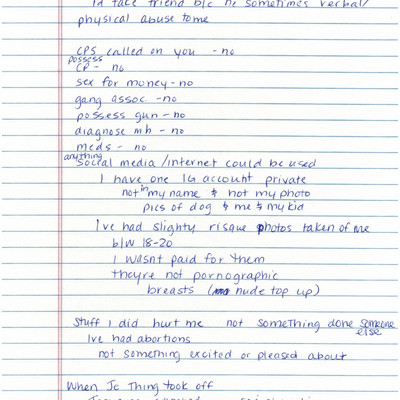 I'd take friend b/c he sometimes verbal/
physical abuse to me
CPS called on you - no
possess
CP - no
sex for money - no
gang assoc - no
possess gun - no
diagnose mh - no
meds - no
anything
social media/internet could be used
I have one IG account private
not in my name & not my photo
pics of dog & me & my kid
I've had slighty risque photos taken of me
b/w 18-20
I wasnt paid for them
theyre not pornographic
breasts (nude top up)
Stuff I did hurt me not something done someone
else
Ive had abortions
not something excited or pleased about
When Jc Thing took off